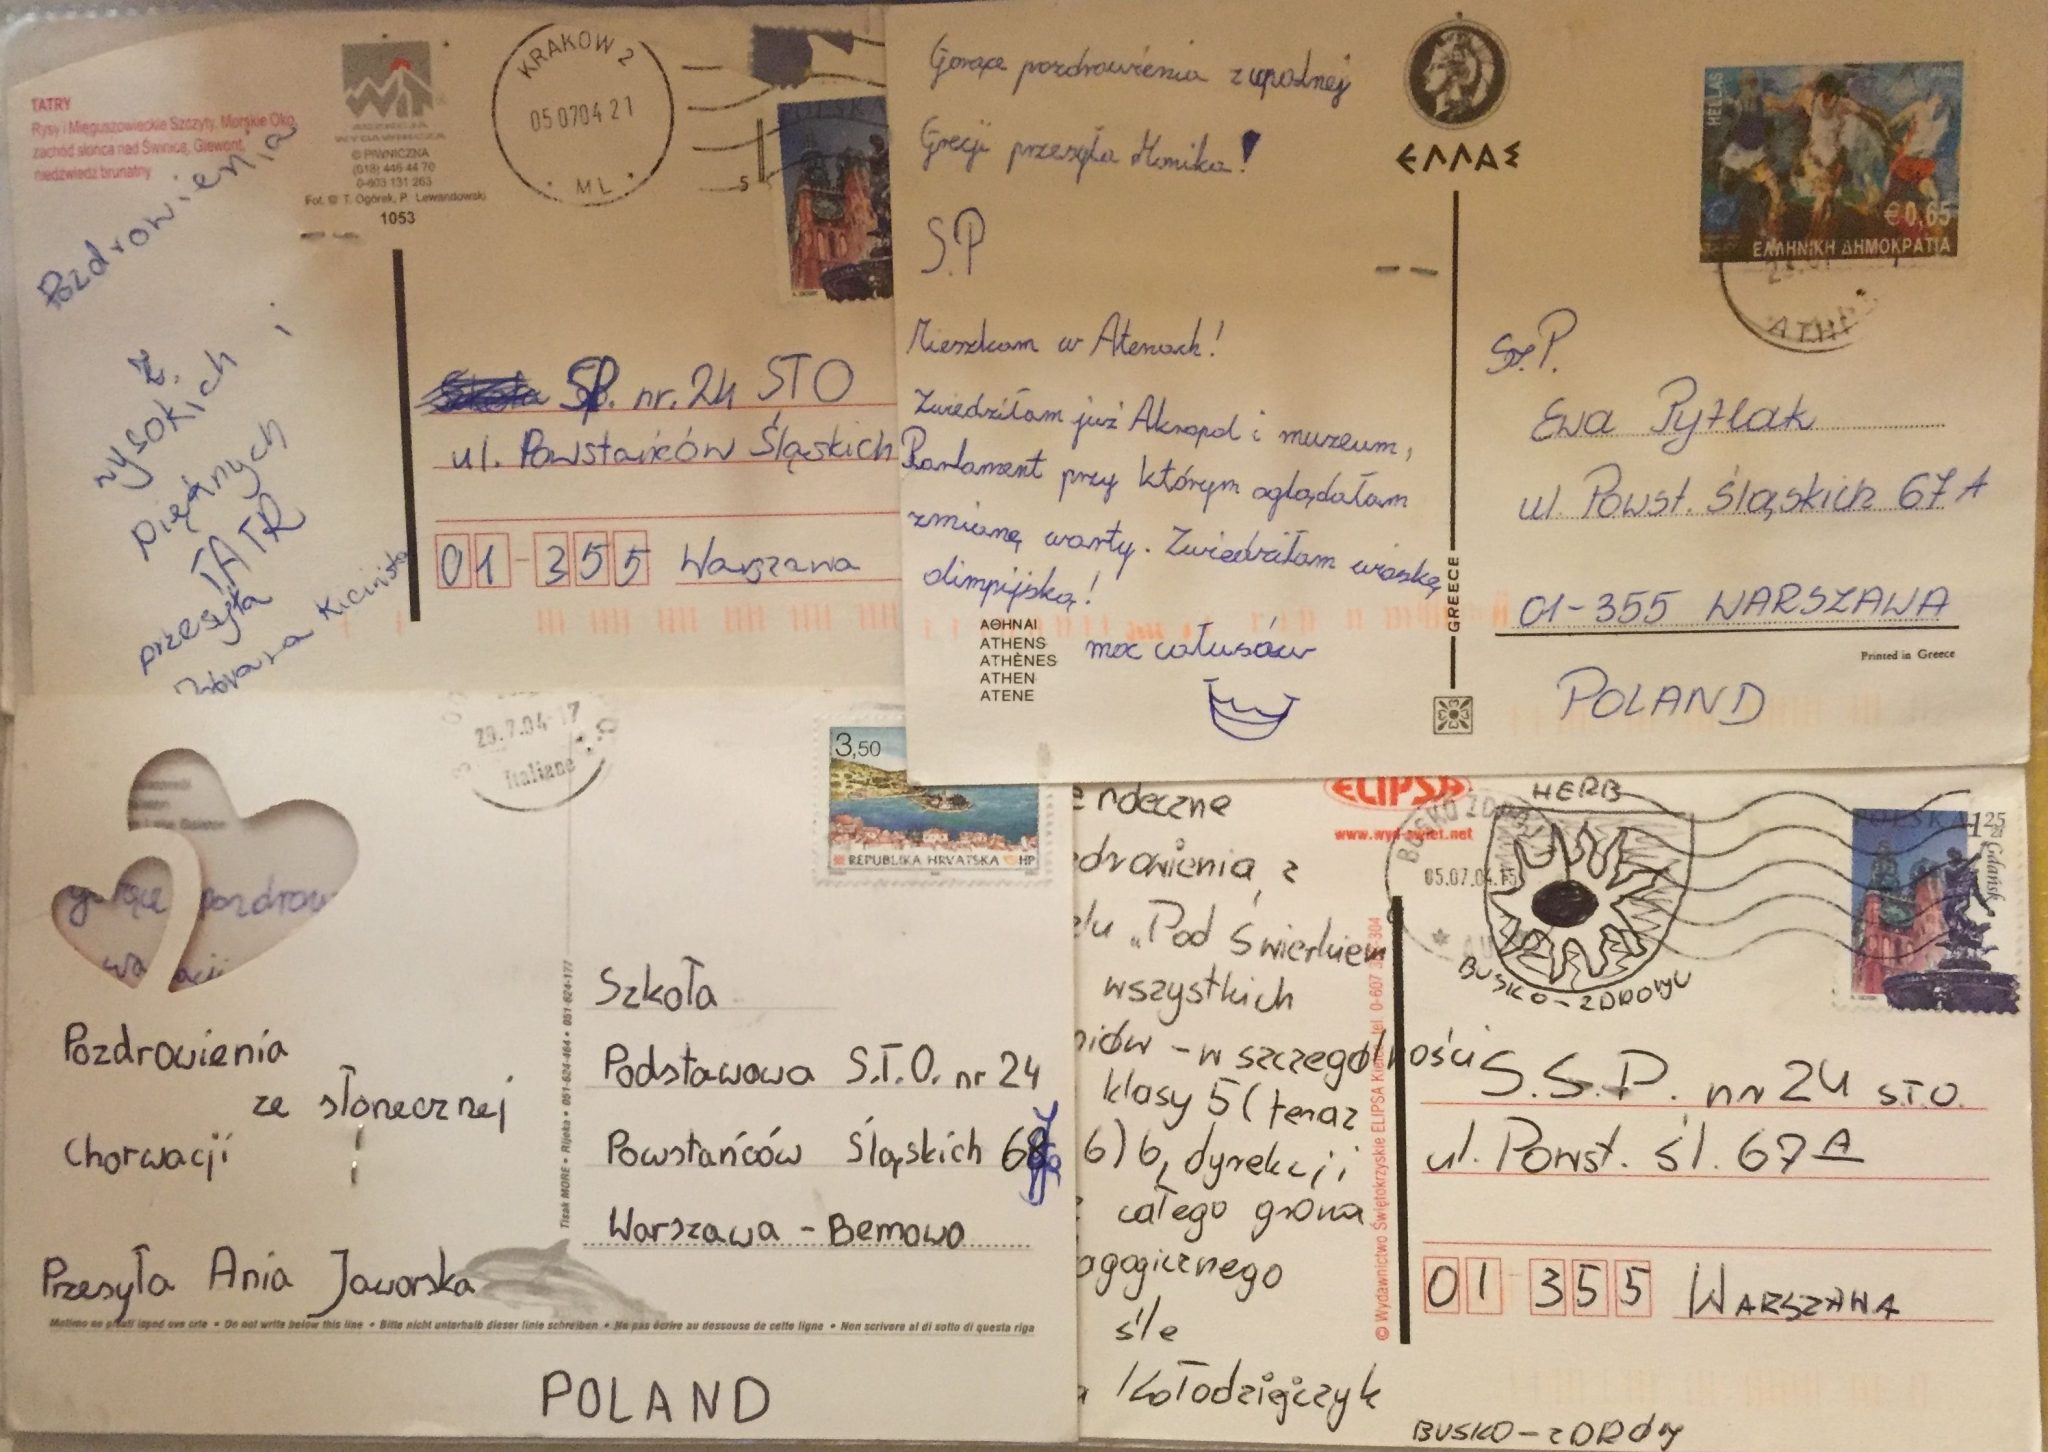 TATRY
Rysy i Mięguszowieckie Szczyty, Morskie Oko,
zachód słońca nad Świnicą, Giewont,
niedźwiedź brunatny
WiT
AGENCJA
WYDAWNICZA
© PIWNICZNA
(018) 446 44 70
0-603 131 263
Fot. © T. Ogórek, P. Lewandowski
1053
KRAKÓW 2
050704 21
ML
Pozdrowienia
z
wysokich i
pięknych
TATR
przesyła
SP. nr. 24 STO
ul. Powstańców Śląskich
01-355 Warszawa
Gorące pozdrowienia z upalnej
Grecji przesyła Monika!
S.P
Mieszkam w Atenach!
Zwiedziłam już Akropol i muzeum,
Parlament przy którym oglądałam
zmianę warty. Zwiedziłam wioskę
olimpijską!
moc całusów
ΑΘΗΝΑΙ
ATHENS
ATHÈNES
ATHEN
ATENE
ΕΛΛΑΣ
GREECE
HELLAS
€0,65
ΕΛΛΗΝΙΚΗ ΔΗΜΟΚΡΑΤΙΑ
Sz.P.
Ewa Pytlak
ul. Powst. Śląskich 67A
01-355 WARSZAWA
Printed in Greece
POLAND
29.7.04-17
Italiane
3,50
REPUBLIKA HRVATSKA HP
gorące pozdrow
Pozdrowienia
ze słonecznej
Chorwacji
Przesyła Ania Jaworska
Tisak MORE • Rijeka • 051-624-464 • 051-624-177
Szkoła
Podstawowa S.T.O. nr 24
Powstańców Śląskich
Warszawa - Bemowo
Do not write below this line • Bitte nicht unterhalb dieser linie schreiben • Ne pas écrire au dessouse de cette ligne • Non scrivere al di sotto di questa riga
POLAND
erdeczne
drowienia z
elu „Pod Świerkiem
wszystkich
niów - w szczególności
klasy 5 (teraz
6) b, dyrekcji
całego grona
agogicznego
śle
Kołodziejczyk
ELIPSA
www.wyd-swiet.net
© Wydawnictwo Świętokrzyskie ELIPSA
BUSKO ZDRÓJ
05.07.04.15
HERB
BUSKO-ZDROJU
POLSKA 1 25 zł
Gdańsk
S.S.P. nr 24 S.T.O.
ul. Powst. Śl. 67A
01 355 WARSZAWA